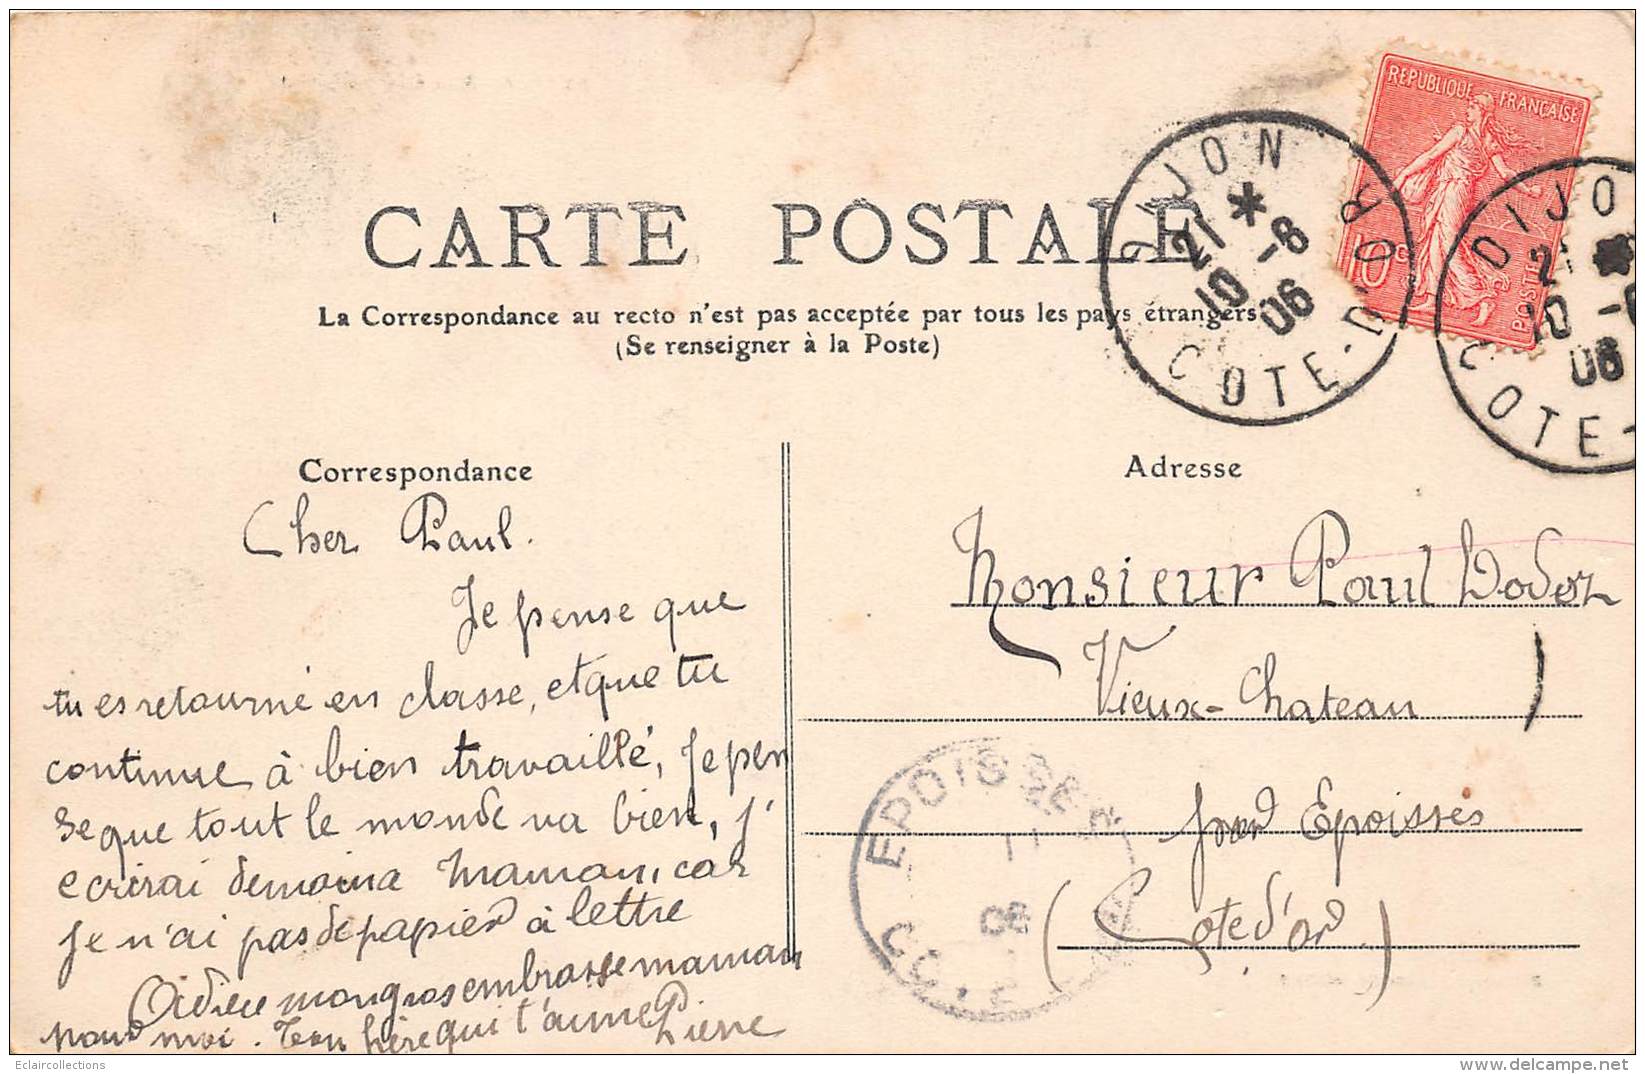 CARTE POSTALE
La Correspondance au recto n'est pas acceptée par tous les pays étrangers
(Se renseigner à la Poste)
REPUBLIQUE FRANÇAISE
10 c
POSTES
DIJON
21 * 
10 -8
06
COTE-D'OR
DIJO
21 *
10 -
06
COTE-
Correspondance
Cher Paul.
Je pense que
tu es retourné en classe, et que tu
continue à bien travaillé, Je pen
se que tout le monde va bien, j'
ecrirai demain a Maman, car
Je n'ai pas de papier à lettre
Adieu mon gros embrasse maman
pour moi. Ton frère qui t'aime Pierre
Adresse
Monsieur Paul
Vieux-Chateau
par Epoisses
(Cote d'or)
EPOISSES
11
06
Eclaircollections
www.delcampe.net